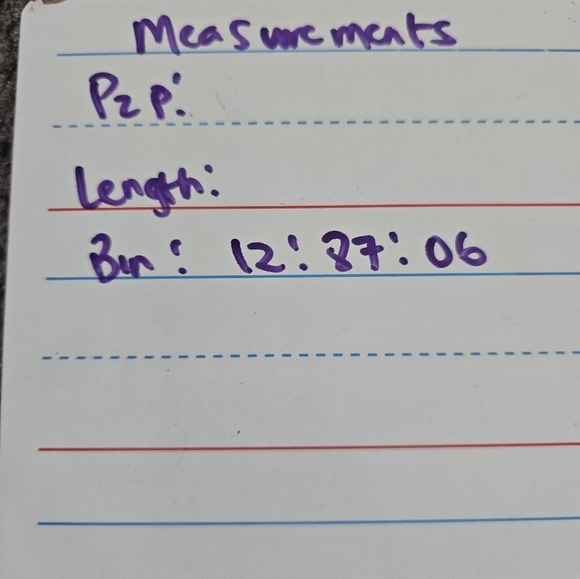 Measurements
P2P:
Length:
Bin: 12:87:06